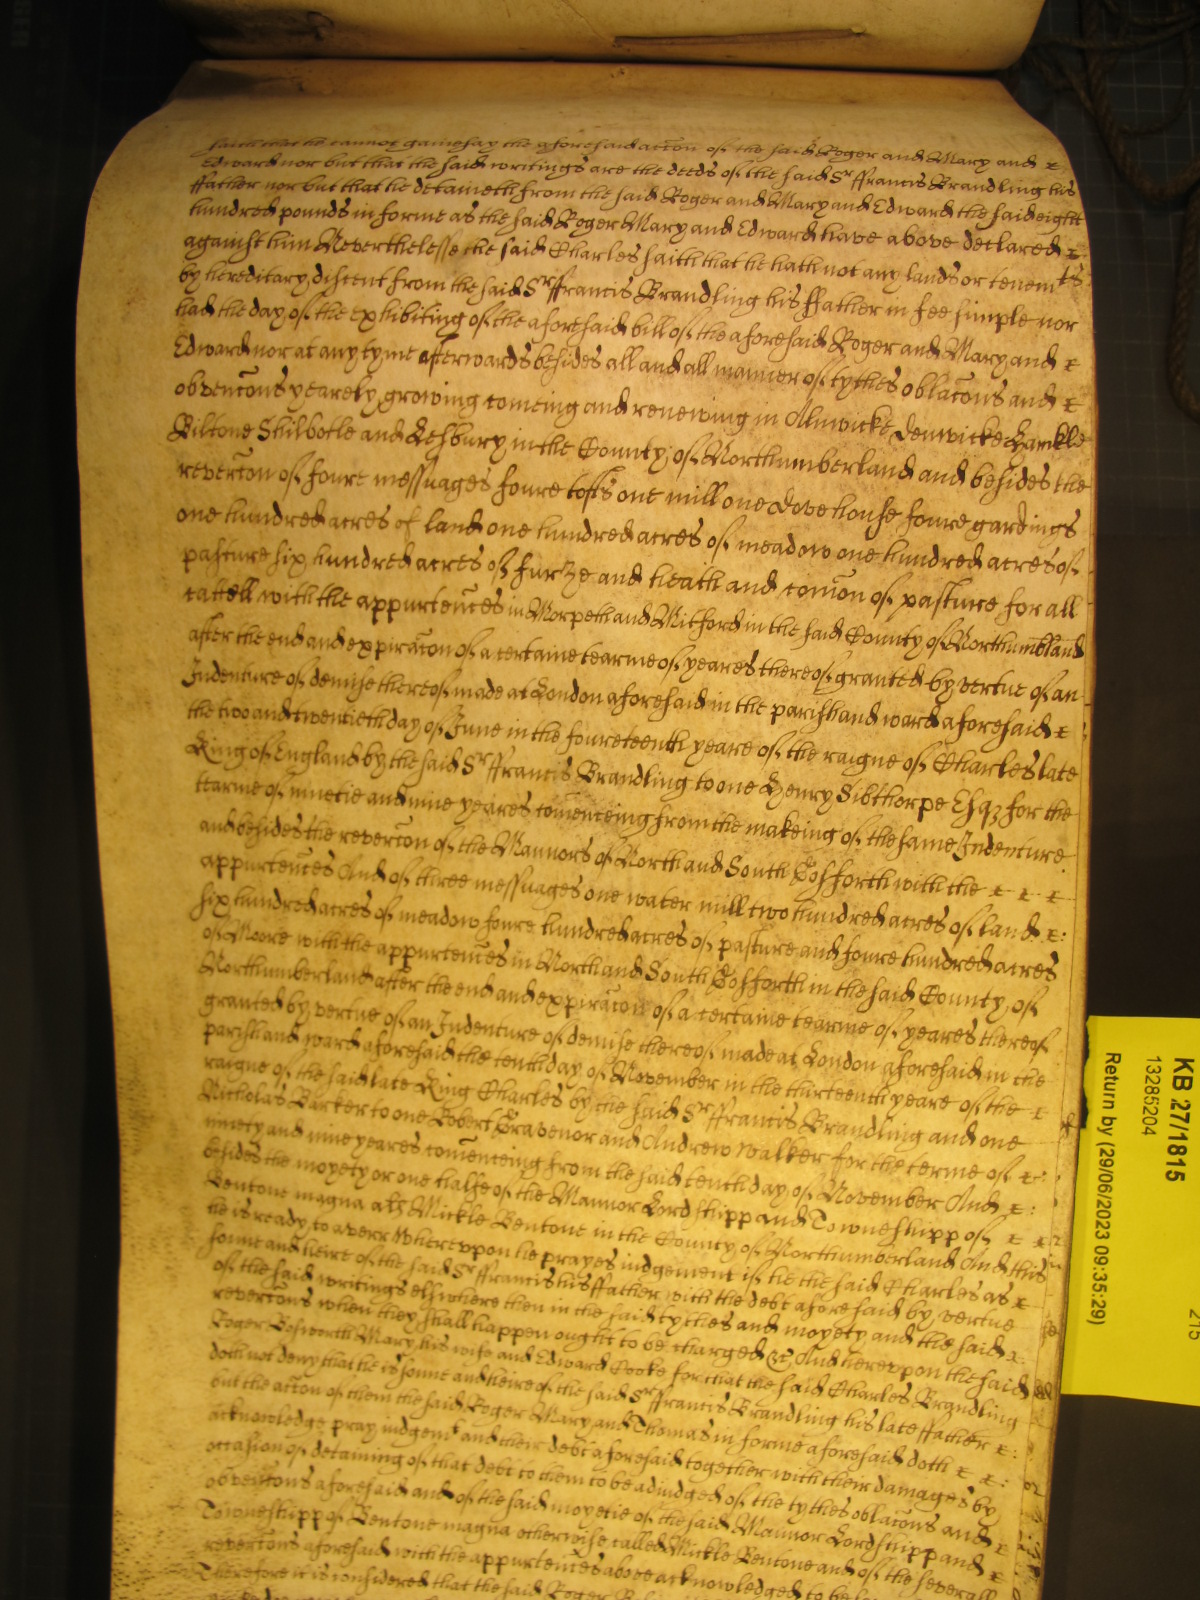 saith that he cannot gainesay the aforesaid accon of the said Roger and Mary and
Edward nor but that the said writings are the deeds of the said Sr ffrancis Brandling his
ffather nor but that he detaineth from the said Roger and Mary and Edward the said eight
hundred pounds in forme as the said Roger Mary and Edward have above declared
against him Neverthelesse the said Charles saith that he hath not any lands or tenemts
by hereditary discent from the said Sr ffrancis Brandling his ffather in fee simple nor
had the day of the exhibiting of the aforesaid bill of the aforesaid Roger and Mary and
Edward nor at any tyme afterwards besides all and all manner of tythes oblacons and
obvencons yearely growing comeing and renewing in Alnwicke Denwicke
Biltone Shilbotle and Lesbury in the County of Northumberland and besides the
revercon of foure messuages foure tofts one mill one dove house foure gardings
one hundred acres of land one hundred acres of meadow one hundred acres of
pasture six hundred acres of furze and heath and comon of pasture for all
cattell with the appurtences in Morpeth and Mitford in the said County of Northumbland
after the end and expiracon of a certaine tearme of yeares thereof granted by vertue of an
Indenture of demise thereof made at London aforesaid in the parish and ward aforesaid
the two and twentieth day of June in the foureteenth yeare of the raigne of Charles late
King of England by the said Sr ffrancis Brandling to one Henry Sibthorpe Esqz for the
tearme of ninetie and nine yeares comenceing from the makeing of the same Indenture
and besides the revercon of the Mannors of North and South Gosforth with the
appurtences And of three messuages one water mill two hundred acres of land
six hundred acres of meadow foure hundred acres of pasture and foure hundred acres
of Moore with the appurtences in North and South Gosforth in the said County of
Northumberland after the end and expiracon of a certaine tearme of yeares thereof
granted by vertue of an Indenture of demise thereof made at London aforesaid in the
parish and ward aforesaid the tenth day of November in the thirteenth yeare of the
raigne of the said late King Charles by the said Sr ffrancis Brandling and one
Nicholas Barker to one Robert Gravenor and Andrew Walker for the terme of
ninety and nine yeares comenceing from the said tenth day of November And
besides the moyety or one halfe of the Mannor Lordshipp and Towneshipp of
Bentone magna als Mickle Bentone in the County of Northumberland And this
he is ready to averr Wherevpon he prayes iudgement if he the said Charles as
sonne and heire of the said Sr ffrancis his ffather with the debt aforesaid by vertue
of the said writings elswhere then in the said tythes and moyety and the said
revercons when they shall happen ought to be charged &c And herevpon the said
Roger Bosworth Mary his wife and Edward Cooke for that the said Charles Brandling
doth not deny that he is sonne and heire of the said Sr ffrancis Brandling his late ffather
out the accon of them the said Roger Mary and Thomas in forme aforesaid doth
acknowledge pray iudgemt and their debt aforesaid together with their damages by
occasion of detaining of that debt to them to be adiudged of the tythes oblacons and
obvencons aforesaid and of the said moyetie of the said Mannor Lordshipp and
Towneshipp of Bentone magna otherwise called Mickle Bentone and of the severall
revercons aforesaid with the appurtences above acknowledged to be
Therefore it is considered that the said Roger
KB 27/1815
13285204
Return by (29/06/2023 09:35:29)
215